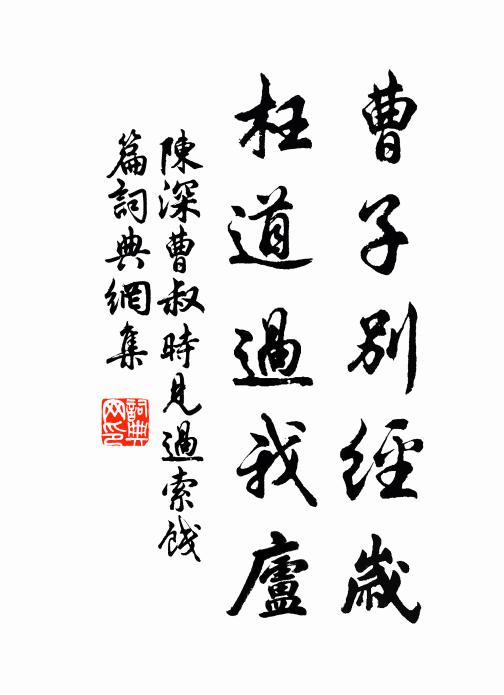 曹子別經歲
枉道過我廬
陳深曹叔時見過索餞
篇詞典網集
詞典網印